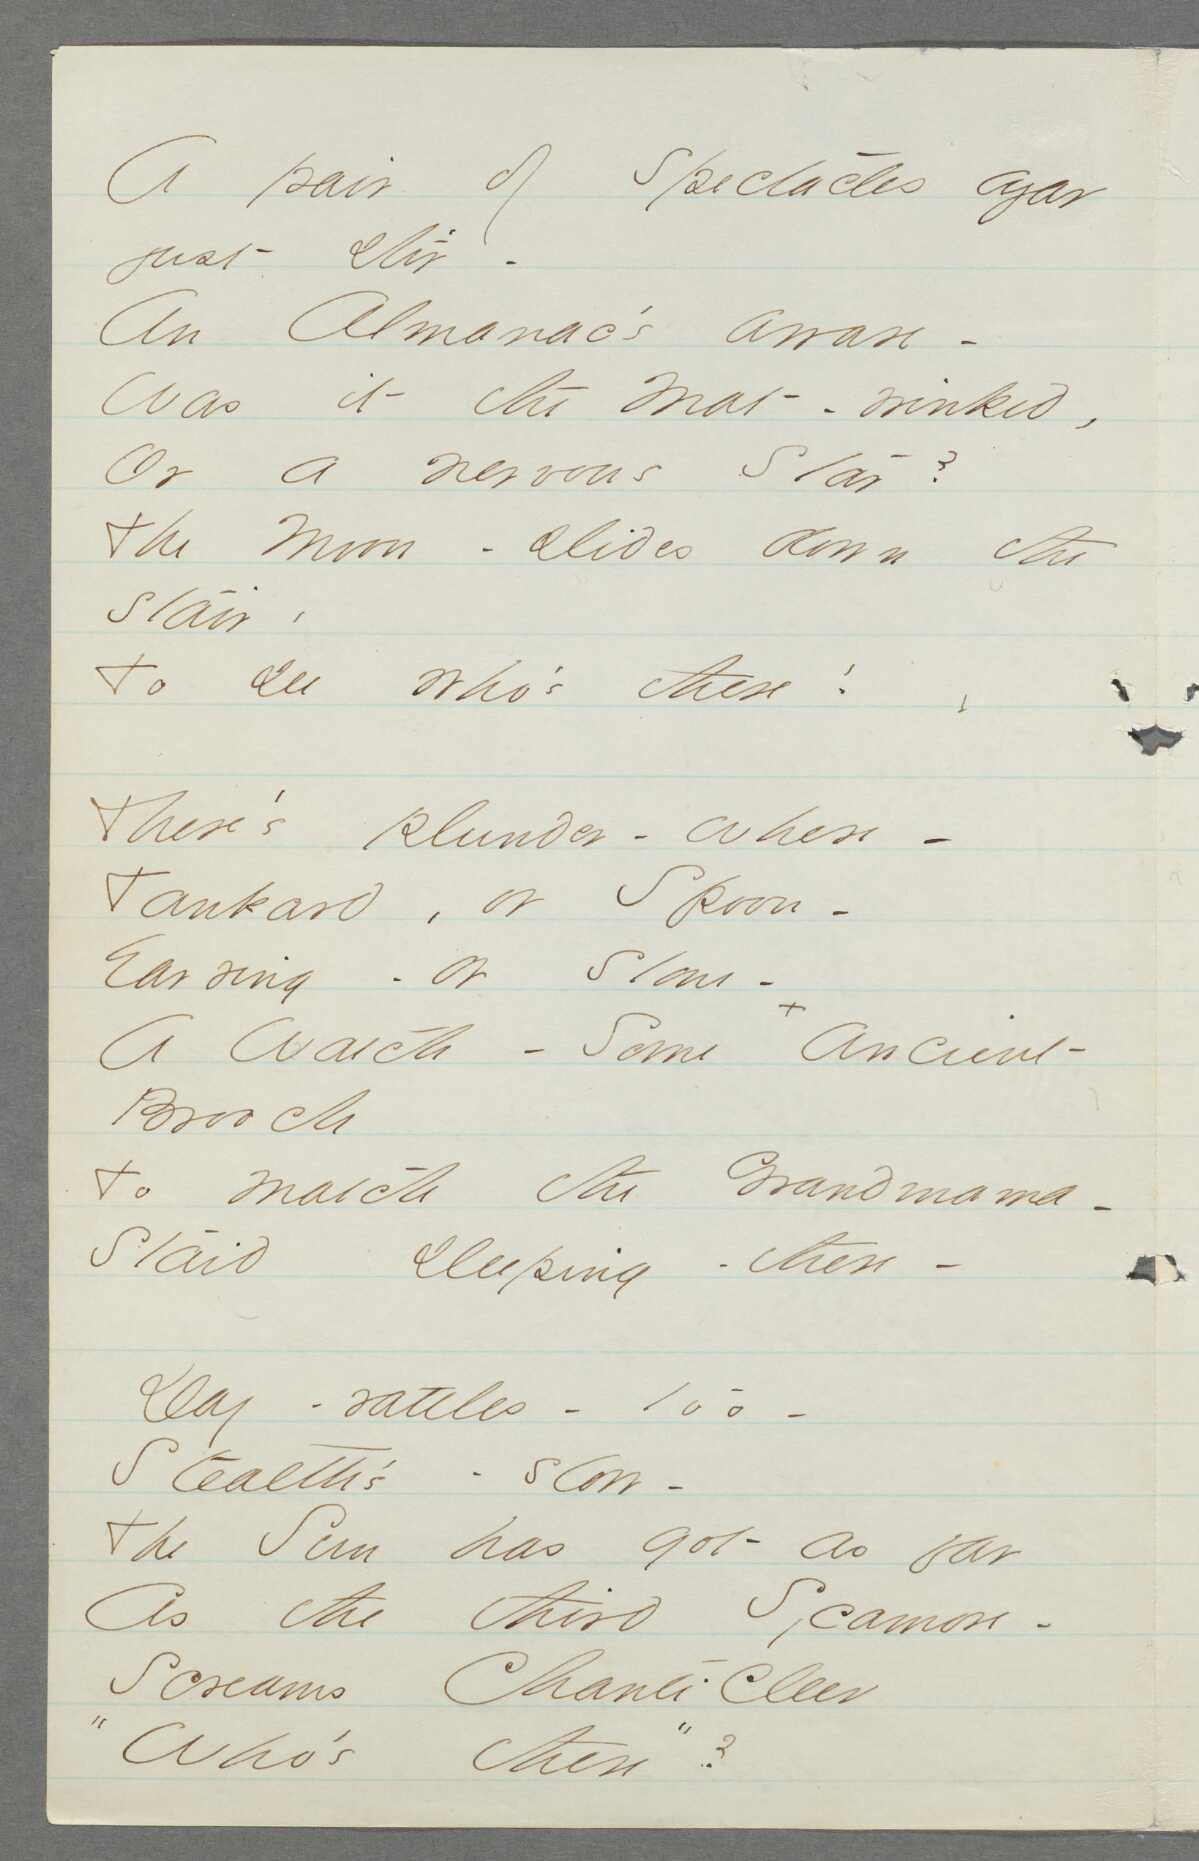 A pair of Spectacles ajar
just stir -
An Almanac's aware -
Was it the Mat - winked,
Or a nervous Star?
The Moon - slides down the
stair,
To see who's there!
There's plunder - where -
Tankard, or Spoon -
Earring - or Stone -
A Watch - Some + Ancient
Brooch
To match the Grandmama -
Staid sleeping - there -
Day - rattles - too -
Stealth's - slow -
The Sun has got as far
As the third Sycamore -
Screams Chanticleer
"Who's there"?